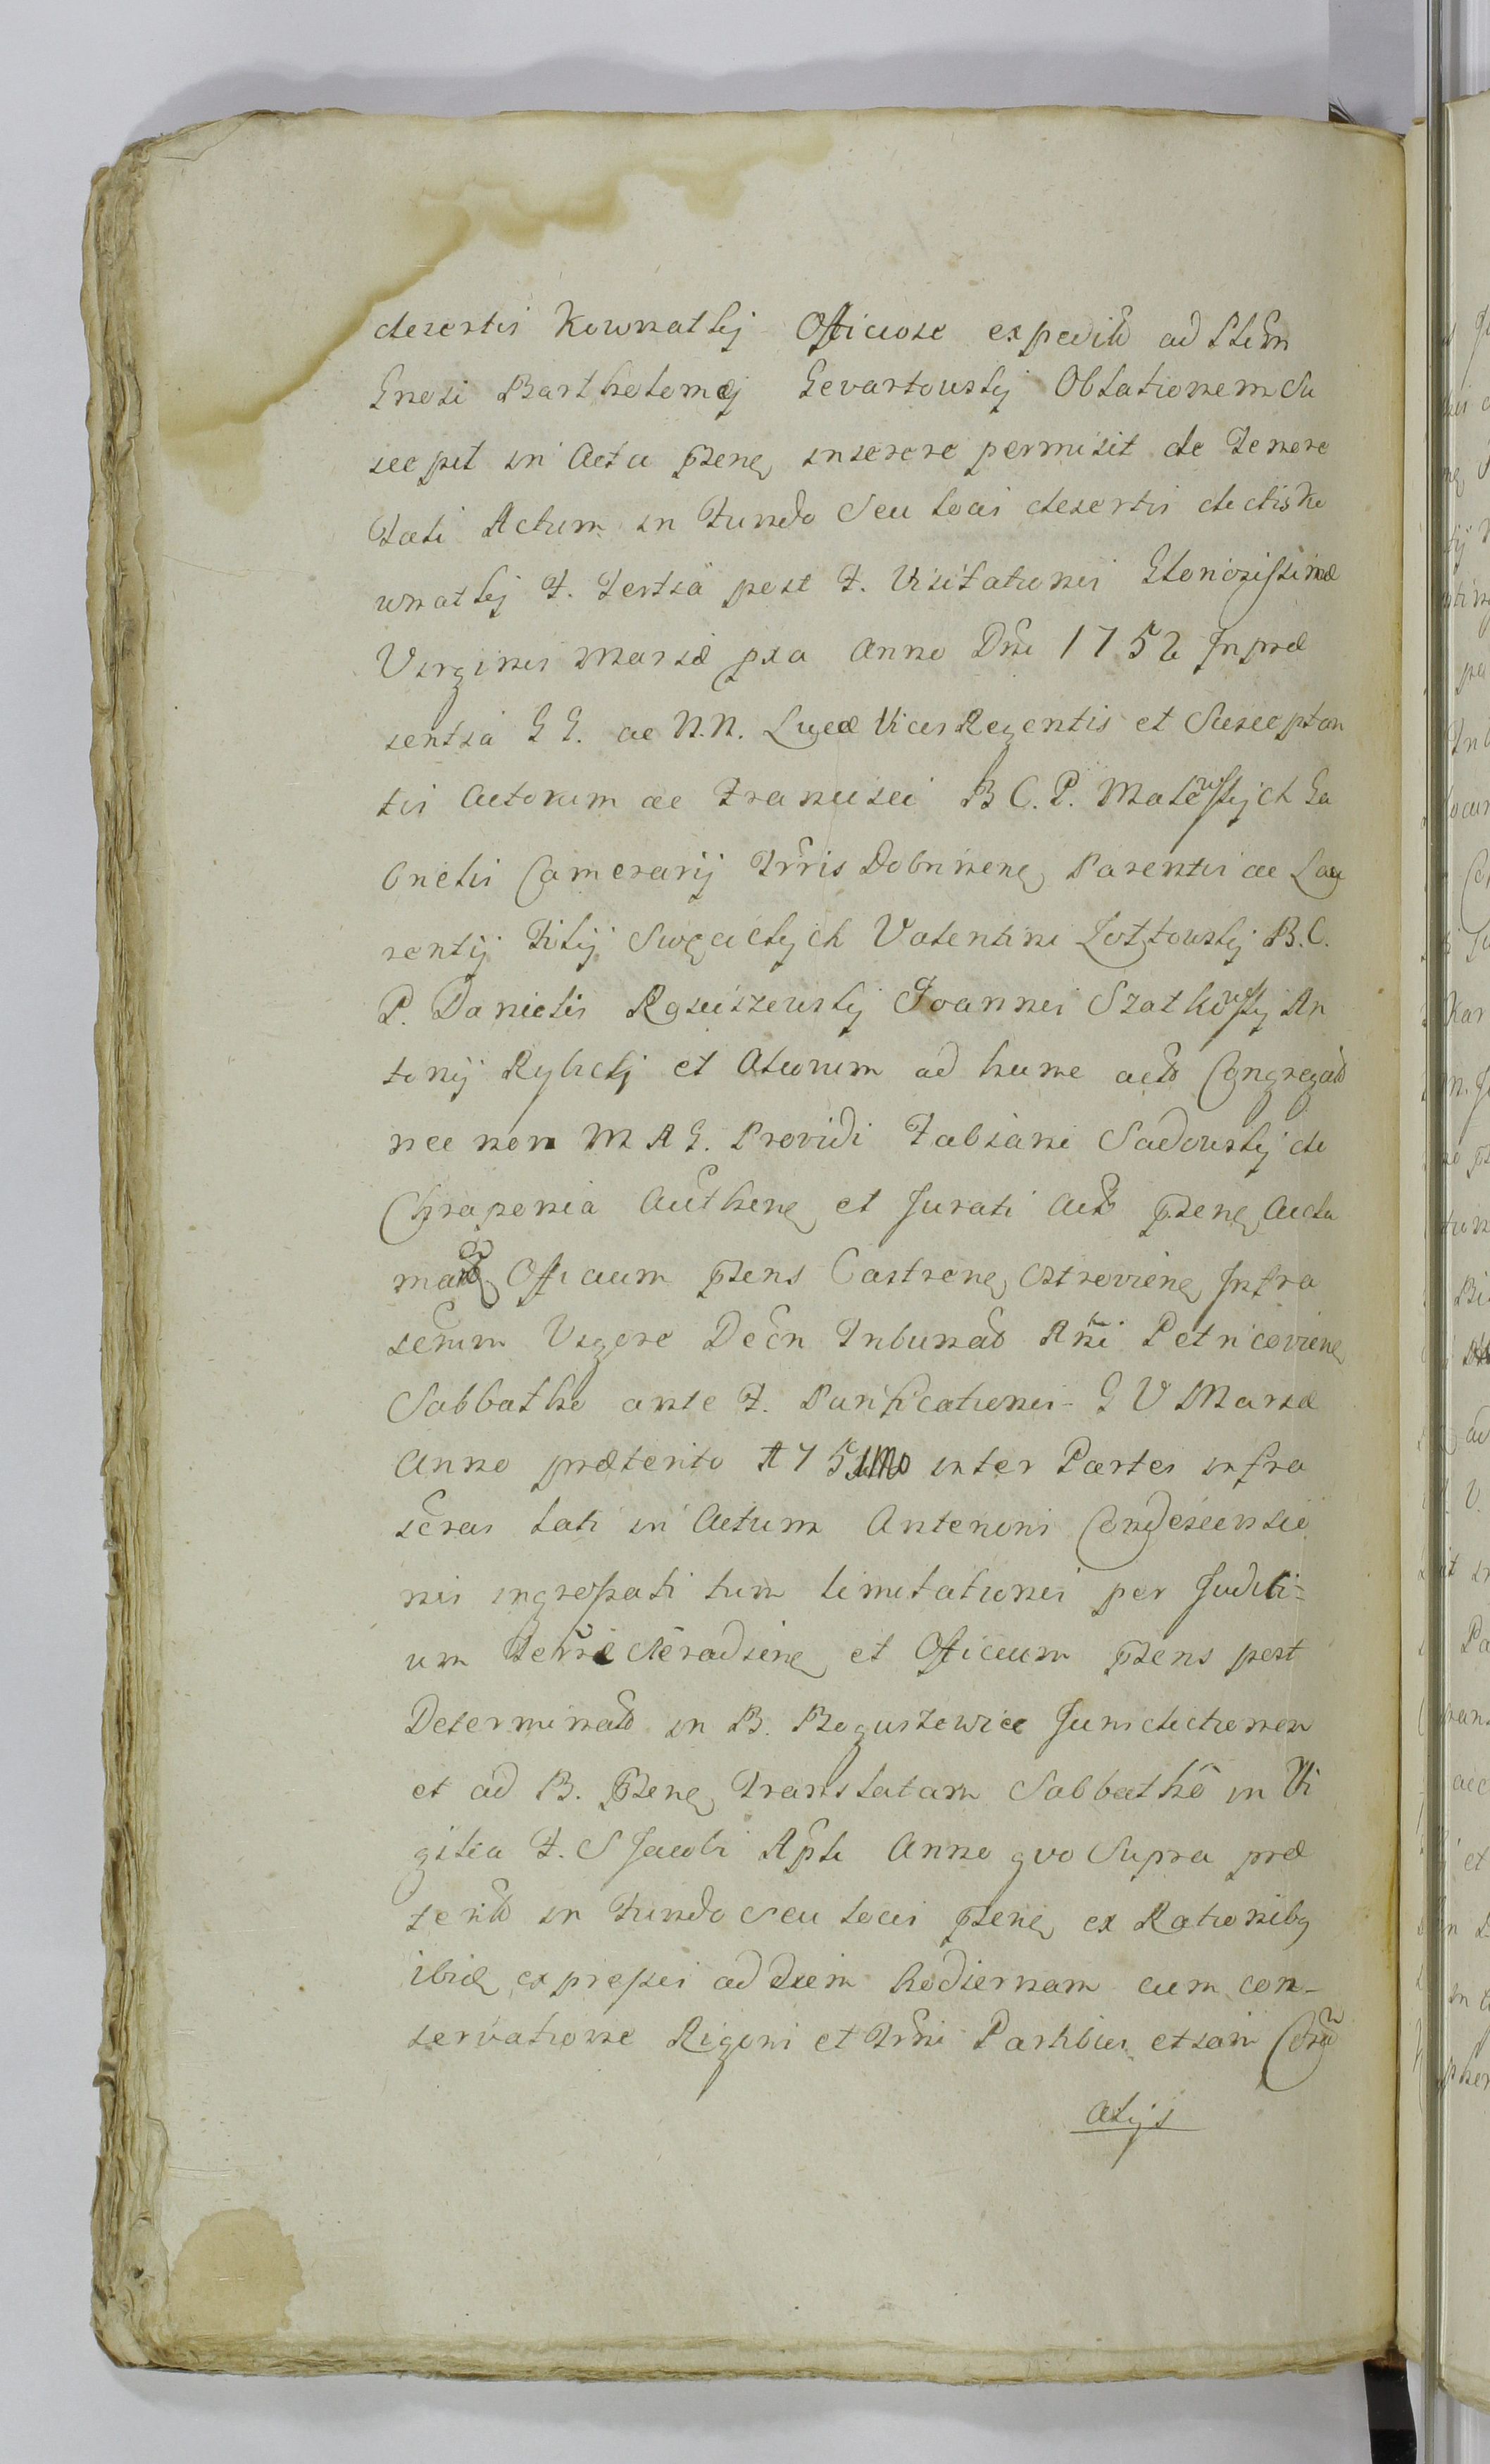 desertis Kownatky Officiose expedit ad Item
Gnosi Bartholomęj Gevartowsky Oblationem Su
scepit in Acta Pseng inserere permisit de Tenore
Tali Actum in Fundo Seu loci desertis dictis Ko
wnatky F. Tertia post F. Visitationis Gloriosissimæ
Virginis Mariæ pxa Anno Dni 1752 In præ
sentia G G. ac N.N. Lucæ Vices Regentis et Suscepton
tis Actorum ac Francisci B C. P. Malewskych Ga
brielis Camerarij Trris Dobrinens Parentis ac Lau
rentij Filij Swęcickych Valentini Zołtowsky B.C.
P. Danielis Rosciszewsky Joannis Szatkowsky An
tonij Rybcky et Aliorum ad hunc actũ Congregatõ
nec non M A G. Providi Fabiani Sadowsky de
Chraponia Authene et Jurati Actũ Psene Aictu
Officium Psens Castrene Ostroviene Infra
scrum Vigore Decri Tribunatũ Rni Petricoviene
Sabbatho ante F. Purificationis G V Mariæ
Anno præterito 175 inter Partes infra
scras lati in Actum Anterioris Condescensio
nis ingrossati tum limitationis per Judici-
um Terre Siradiene et Officium Psens post
Determinatõ in B. Boguszewice Jurisdictionem
et ad B. Psene Translatam Sabbathô in Vi
gilia F. S Jacobi Apli Anno quo Supra præ
teritõ in Fundo Seu loci Psene ex Rationibg
ibid expressis ad diem hodiernam cum con-
servatione Rigoris et Trmi Partibus etiam Cond
alijs